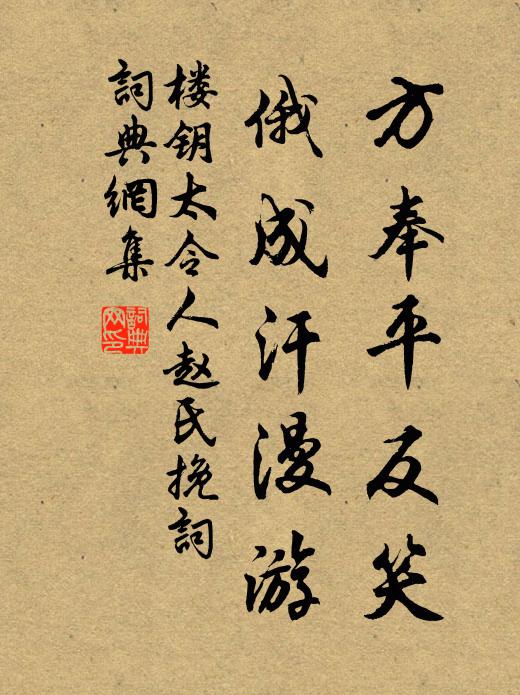 方奉平反笑
俄成汗漫游
楼钥太令人赵氏挽詞
詞典網集
詞典网印